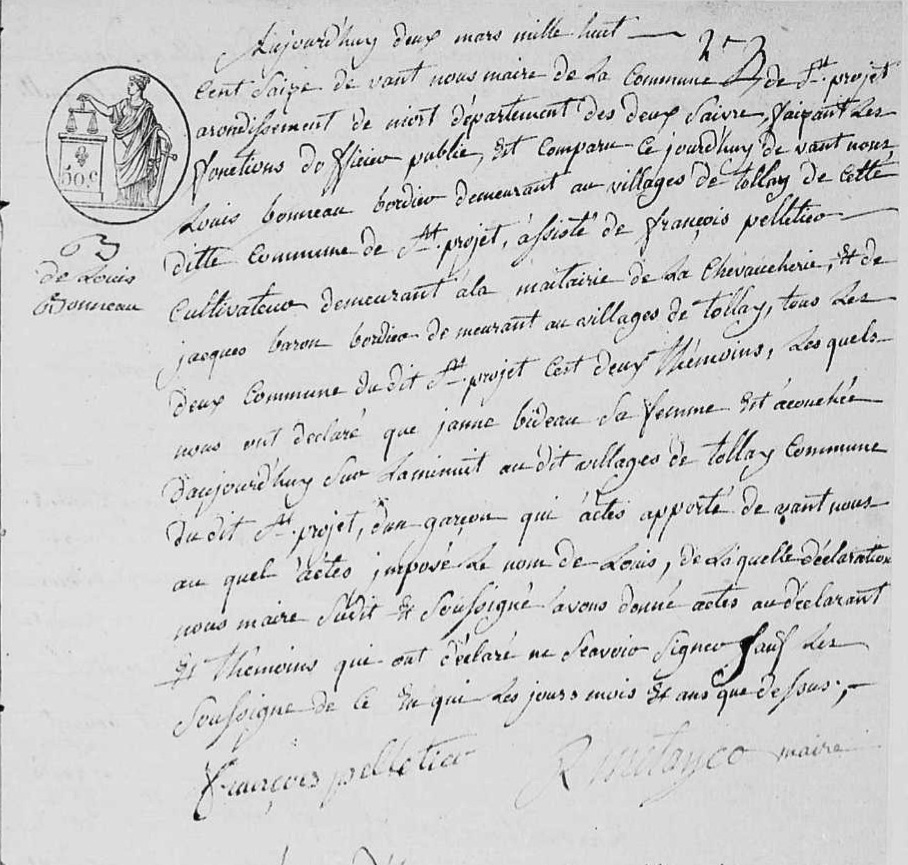 Aujourd'huy deux mars mille huit
Cent Saize de vant nous maire de La Commune de St. projet
arondissement de niort département des deux Saivre, faisant Les
fonctions dofficier publie, Est Comparu Ce jourd'huy de vant nous
Louis bonneau bordier demeurant au villages de tollay de Cette
ditte Commune de St. projet, assisté de françois pelletier
Cultivateur demeurant àla maitairie de La Chevaucherie, Et de
jacques baron bordier de meurant au villages de tollay, tous Les
deux Commune du dit St. projet Cest deux Thémoins, Les quels
nous ont declaré que janne bideau Sa femme Est acouchée
Daujourd'huy Sur Laminuit au dit villages de tollay Commune
du dit St. projet, d'un garçon qui àctes apporté de vant nous
au quel àctes jmposé Le nom de Louis, de Laquelle déclaration
nous maire Sudit Et Soussigné avons donné actes au déclarant
Et Themoins qui ont déclaré ne Seavoir Signer Sauf Les
Soussigne de Ce En qui Les jours mois Et ans que dessus;
françois pelletier
maire
50.c
de Louis
Bonneau